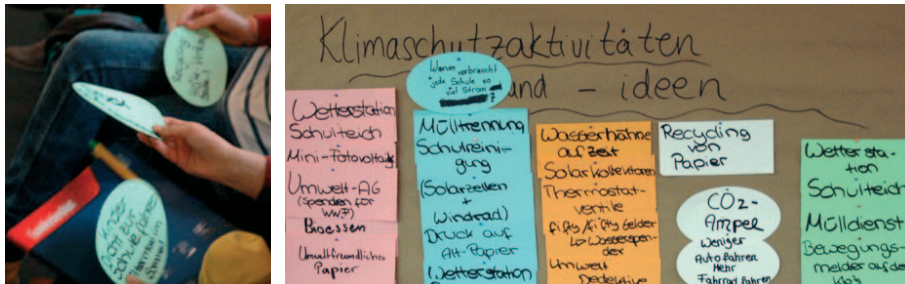 Klimaschutzaktivitäten
und - ideen
Warum verbraucht
jede Schule so
viel Strom
?
Wetterstation
Schulteich
Mini-Fotovoltaik
Umwelt-AG
(spenden für
WWF)
Bioessen
Umweltfreundliches
Papier
Mülltrennung
Schulreini-
gung
(Solarzellen
+
Windrad)
Druck auf
Alt-Papier
Wetterstation
Wasserhähne
auf zeit
Solarkollektoren
Thermostat-
vertile
fifty/fifty Gelder
↳ Wasserspen-
der
Umwelt
Dedektive
Recycling
von
Papier
CO2-
Ampel
Weniger
Autofahren
Mehr
Fahrrad fahren
Wetter sta-
tion
Schulteich
Mülldienst
Bewegungs-
melder auf den
Klos